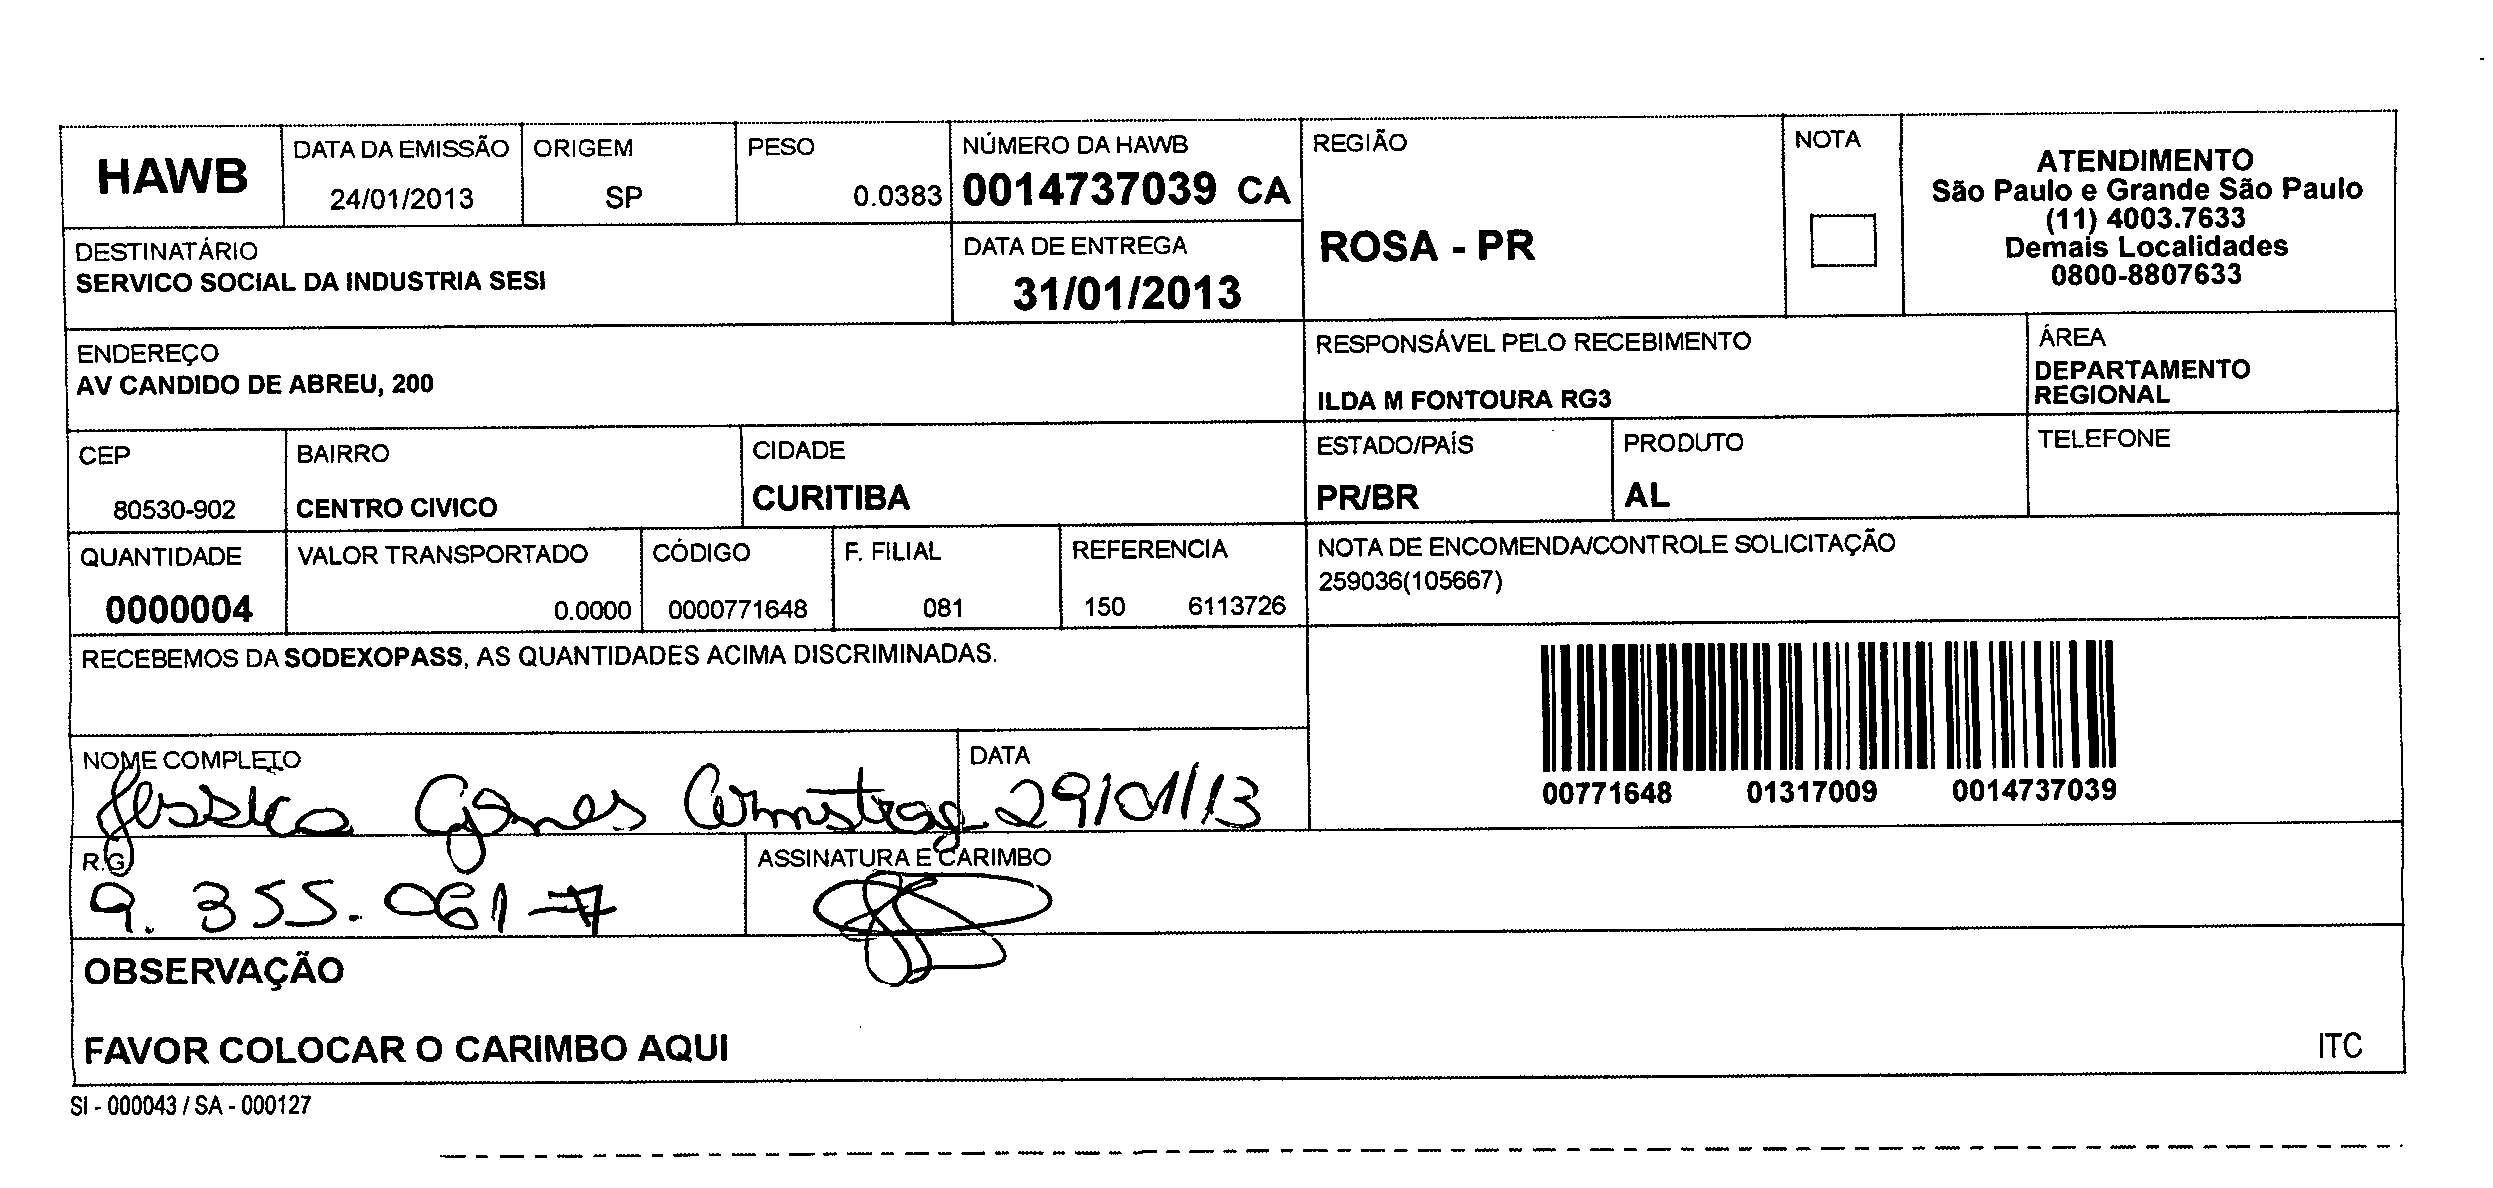 HAWB
DATA DA EMISSÃO
24/01/2013
ORIGEM
SP
PESO
0.0383
NÚMERO DA HAWB
0014737039 CA
REGIÃO
ROSA - PR
NOTA
ATENDIMENTO
São Paulo e Grande São Paulo
(11) 4003.7633
Demais Localidades
0800-8807633
DESTINATÁRIO
SERVICO SOCIAL DA INDUSTRIA SESI
DATA DE ENTREGA
31/01/2013
ENDEREÇO
AV CANDIDO DE ABREU, 200
RESPONSÁVEL PELO RECEBIMENTO
ILDA M FONTOURA RG3
ÁREA
DEPARTAMENTO
REGIONAL
CEP
80530-902
BAIRRO
CENTRO CIVICO
CIDADE
CURITIBA
ESTADO/PAÍS
PR/BR
PRODUTO
AL
TELEFONE
QUANTIDADE
0000004
VALOR TRANSPORTADO
0.0000
CÓDIGO
0000771648
F. FILIAL
081
REFERENCIA
150 6113726
NOTA DE ENCOMENDA/CONTROLE SOLICITAÇÃO
259036(105667)
RECEBEMOS DA SODEXOPASS, AS QUANTIDADES ACIMA DISCRIMINADAS.
00771648 01317009 0014737039
NOME COMPLETO
Jessica Gomes
DATA
29/01/13
R.G
9.355.061-7
ASSINATURA E CARIMBO
OBSERVAÇÃO
FAVOR COLOCAR O CARIMBO AQUI
ITC
SI - 000043 / SA - 000127